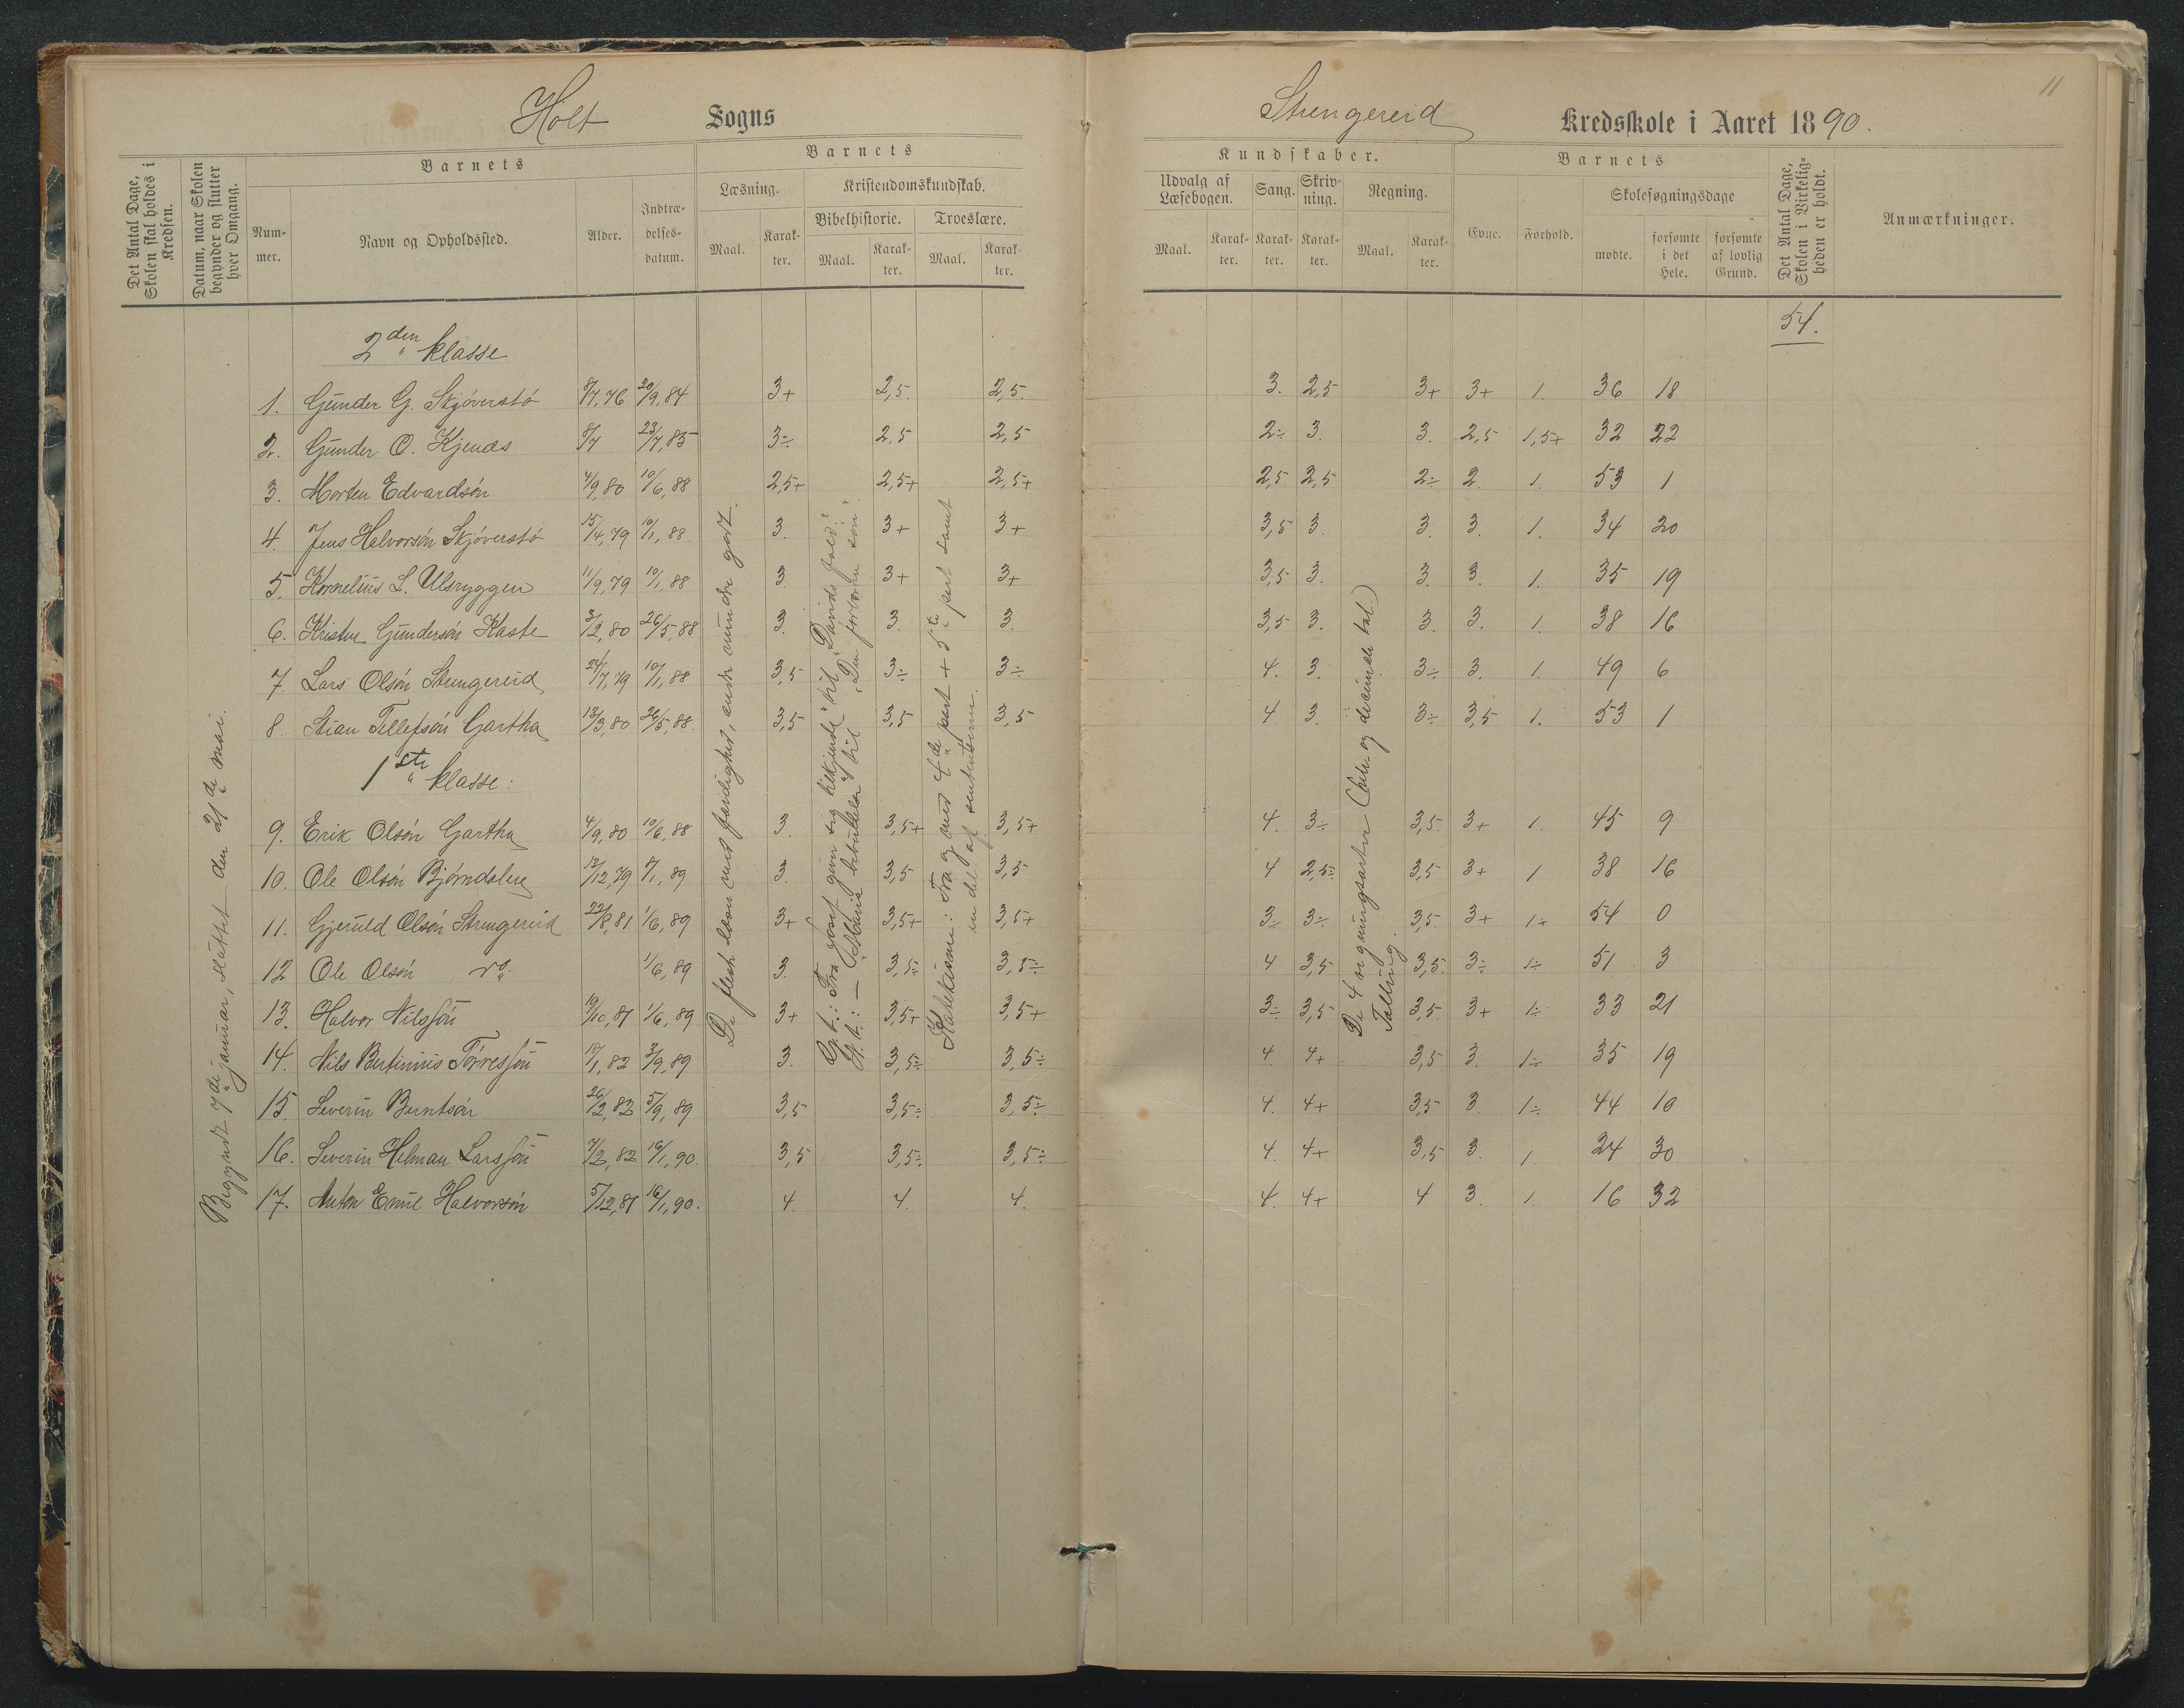 11
Holt Sogns
Strengereid Kredsskole i Aaret 1890.
Det Antal Dage, Skolen skal holdes i Kredsen.
Datum, naar Skolen begynder og slutter hver Omgang.
Barnets
Num-
mer.
Navn og Opholdssted.
Alder.
Indtræ-
delses-
datum.
Barnets
Læsning.
Maal.
Karak-
ter.
Kristendomskundskab.
Bibelhistorie.
Maal.
Karak-
ter.
Troeslære.
Maal.
Karak-
ter.
Kundskaber.
Udvalg af
Læsebogen.
Maal.
Karak-
ter.
Sang.
Karak-
ter.
Skriv-
ning.
Karak-
ter.
Regning.
Maal.
Karak-
ter.
Barnets
Evne.
Forhold.
Skolesøgningsdage
mødte.
forsømte
i det
Hele.
forsømte
af lovlig
Grund.
Det Antal Dage, Skolen i Virkelig-
heden er holdt.
Anmærkninger.
54.
2den klasse
1. Gunder G. Skjöverstö 8/7,76 20/9,84 3+ 2,5. 2,5. 3. 2,5 3+ 3+ 1. 36 18
2. Gunder O. Kjenæs 8/7 23/7,85 3÷ 2,5 2,5 2÷ 3. 3. 2,5 1,5+ 32 22
3. Morten Edvardsön 4/9,80 10/6,88 2,5+ 2,5+ 2,5+ 2,5 2,5 2÷ 2. 1. 53 1
4. Jens Halvorsön Skjöverstö 15/4,79 10/1,88 3. 3+ 3+ 3,5 3. 3. 3. 1. 34 20
5. Kornelius L. Ulsryggen 11/9,79 10/1,88 3. 3+ 3+ 3,5 3. 3. 3. 1. 35 19
6. Kristen Gundersön Kaste 3/2,80 26/5,88 3. 3. 3. 3,5 3. 3. 3. 1. 38 16
7. Lars Olsön Strengereid 24/7,79 10/1,88 3,5 3÷ 3÷ 4. 3. 3÷ 3. 1. 49 6
8. Stian Tellefsön Gartha 13/3,80 26/5,88 3,5 3,5 3,5 4. 3. 3÷ 3,5 1. 53 1
1ste klasse:
9. Erik Olsön Gartha 4/9,80 10/6,88 3. 3,5+ 3,5+ 4. 3÷ 3,5. 3+ 1. 45 9
10. Ole Olsön Björndalen 13/12,79 8/1,89 3. 3,5 3,5 4 2,5÷ 3,5 3+ 1 38 16
11. Gjeruld Olsön Strengereid 22/8,81 1/6,89 3+ 3,5+ 3,5+ 3÷ 3÷ 3,5. 3+ 1÷ 54 0
12 Ole Olsön 1/6,89 3. 3,5÷ 3,5÷ 4 3,5 3,5. 3÷ 1÷ 51 3
13. Halvor Nilssön 19/10,81 1/6,89 3+ 3,5+ 3,5+ 3÷ 3,5 3,5 3+ 1÷ 33 21
14. Nils Bertinius Törressön 18/1,82 3/9,89 3. 3,5÷ 3,5÷ 4. 4+ 3,5 3. 1÷ 35 19
15. Severin Berntsön 26/2,82 5/9,89 3,5 3,5÷ 3,5÷ 4. 4+ 3,5 3. 1÷ 44 10
16. Severin Helman Larssön 7/2,82 16/1,90. 3,5 3,5÷ 3,5÷ 4. 4+ 3,5 3. 1. 24 30
17. Anton Emil Halvorsön 5/12,81 16/1,90. 4. 4. 4. 4. 4+ 4 3. 1. 16 32
Begyndt 7de januar, sluttet den 21de mai.
De fleste læser med færdighed, andre mindre godt.
G. t.: Fra "Josef giver sig tilkjende" til "Davids fald".
N. t.: — "Maria bebudelse" til "Den fortabte sön".
Katekismus: Fra og med 4de part + 5te part samt
en del af sententserne.
De 4 regningsarter (hele og decimale tal)
Tælling.